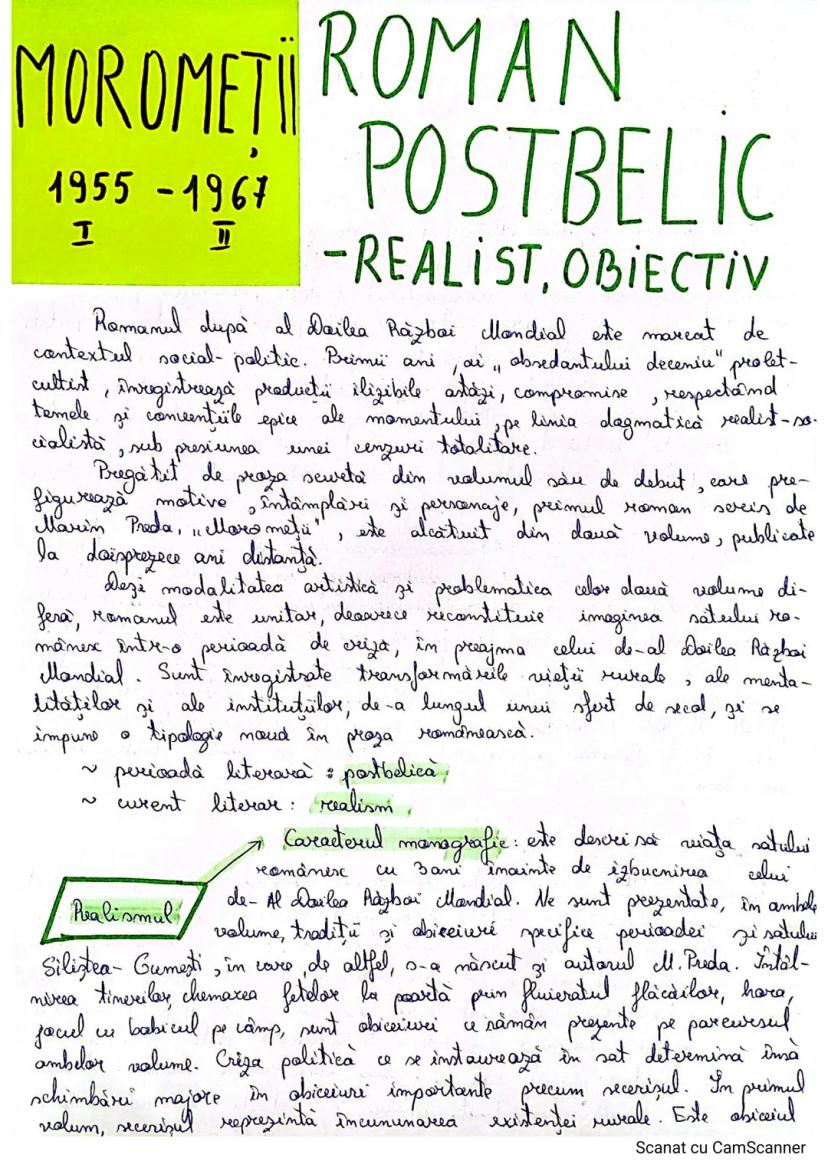 MOROMEȚII
1955 - 1967
I II
ROMAN
POSTBELIC
-REALIST, OBIECTIV
Romanul după al Doilea Război Mondial este marcat de
contextul social-politic. Primii ani, ai „obsedantului deceniu" prolet-
cultist, înregistrează producții ilizibile astăzi, compromise, respectând
temele și convențiile epice ale momentului, pe linia dogmatică realist-so-
cialistă, sub presiunea unei cenzuri totalitare.
Pregătit de proza scurtă din volumul său de debut, care pre-
figurează motive, întâmplări și personaje, primul roman scris de
Marin Preda, „Moromeții", este alcătuit din două volume, publicate
la doisprezece ani distanță.
Deși modalitatea artistică și problematica celor două volume di-
feră, romanul este unitar, deoarece reconstituie imaginea satului ro-
mânesc într-o perioadă de criză, în preajma celui de-al Doilea Război
Mondial. Sunt înregistrate transformările vieții rurale, ale menta-
lităților și ale instituțiilor, de-a lungul unui sfert de secol, și se
impune o tipologie nouă în proza românească.
~ perioadă literară : postbelică,
~ curent literar : realism,
Realismul
Caracterul monografic: este descrisă viața satului
românesc cu 3 ani înainte de izbucnirea celui
de- Al Doilea Război Mondial. Ne sunt prezentate, în ambele
volume, tradiții și obiceiuri specifice perioadei și satului
Siliștea-Gumești, în care, de altfel, s-a născut și autorul M. Preda. Întâl-
nirea tinerilor, chemarea fetelor la poartă prin fluieratul flăcăilor, hora,
jocul cu bobicul pe câmp, sunt obiceiuri ce rămân prezente pe parcursul
ambelor volume. Criza politică ce se instaurează în sat determină însă
schimbări majore în obiceiuri importante precum secerișul. În primul
volum, secerișul reprezintă încununarea existenței rurale. Este obiceiul
Scanat cu CamScanner